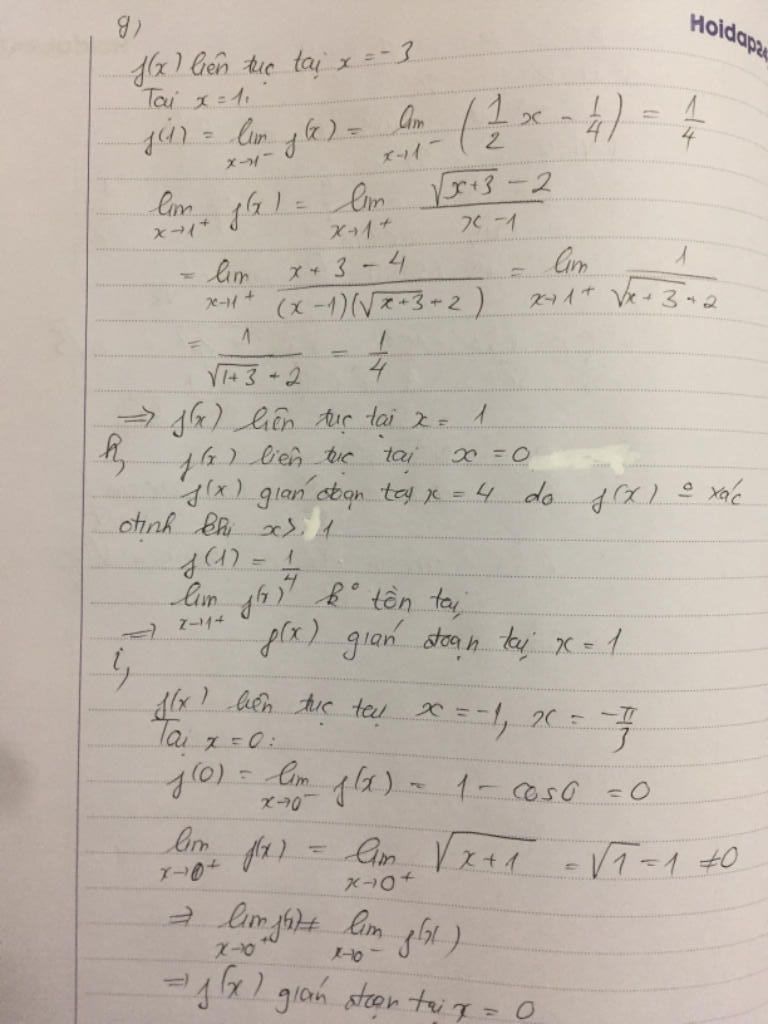 Hoidap24
g)
f(x) liên tục tại x = -3
Tại x = 1.
f(1) = lim_{x→1⁻} f(x) = lim_{x→1⁻} (1/2 x - 1/4) = 1/4
lim_{x→1⁺} f(x) = lim_{x→1⁺} (√(x+3) - 2)/(x - 1)
= lim_{x→1⁺} (x + 3 - 4)/((x - 1)(√(x+3) + 2)) = lim_{x→1⁺} 1/(√(x+3) + 2)
= 1/(√(1+3) + 2) = 1/4
⟹ f(x) liên tục tại x = 1
h, f(x) liên tục tại x = 0
f(x) gián đoạn tại x = 4 do f(x) xác
định khi x > 1
f(1) = 1/4
lim_{x→1⁺} f(x) k° tồn tại
⟹ f(x) gián đoạn tại x = 1
i,
f(x) liên tục tại x = -1, x = -π/3
Tại x = 0:
f(0) = lim_{x→0⁻} f(x) = 1 - cos0 = 0
lim_{x→0⁺} f(x) = lim_{x→0⁺} √(x+1) = √1 = 1 ≠ 0
⟹ lim_{x→0⁺} f(x) ≠ lim_{x→0⁻} f(x)
⟹ f(x) gián đoạn tại x = 0